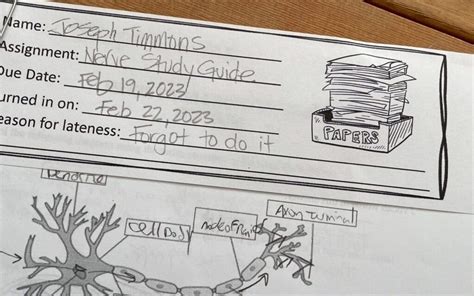 Name: Joseph Timmons
Assignment: Nerve Study Guide
Due Date: Feb 19, 2023
urned in on: Feb 22, 2023
eason for lateness: Forgot to do it
PAPERS
Dendrite
Axon Terminal
Cell Body
node of